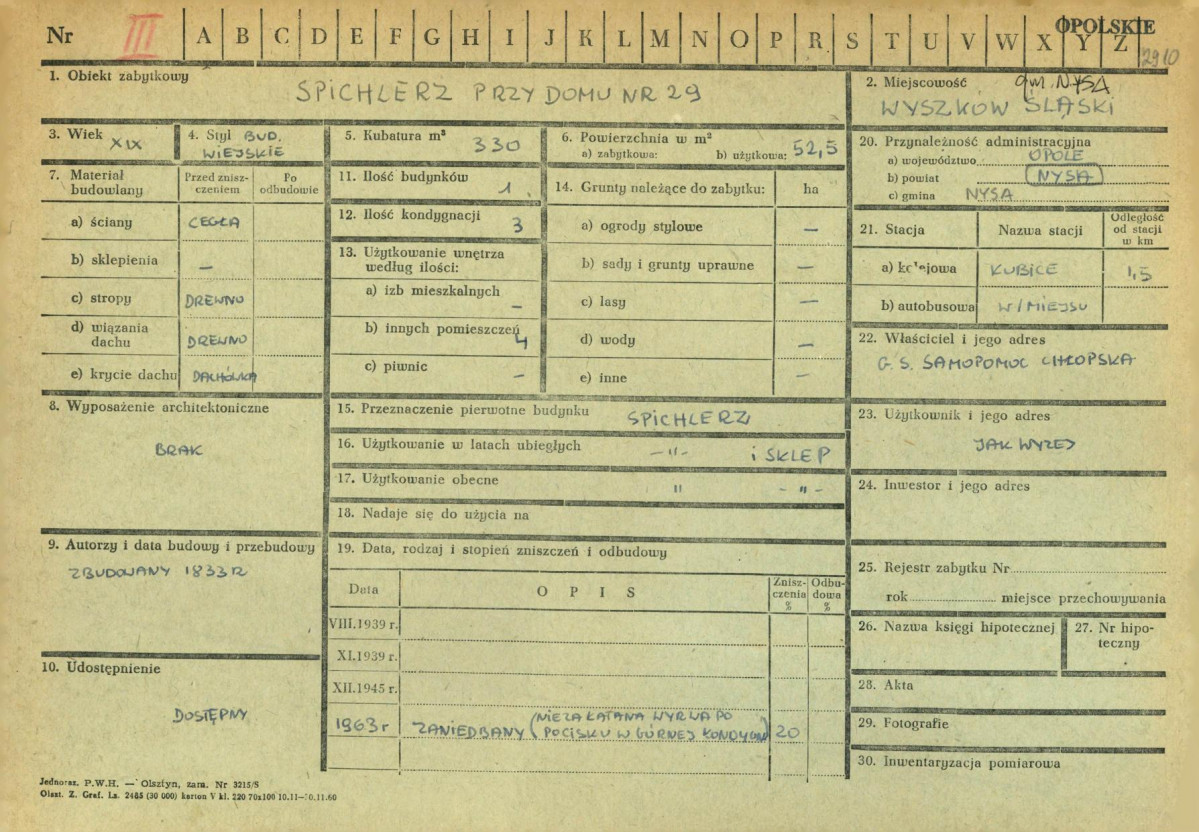 Nr III A B C D E F G H I J K L M N O P R S T U V W X Y Z
OPOLSKIE
2910
1. Obiekt zabytkowy
SPICHLERZ PRZY DOMU NR 29
2. Miejscowość gm. NYSA
WYSZKÓW ŚLĄSKI
3. Wiek
XIX
4. Styl BUD.
WIEJSKIE
5. Kubatura m³
330
6. Powierzchnia w m²
a) zabytkowa: b) użytkowa: 52,5
7. Materiał budowlany
Przed zniszczeniem
Po odbudowie
a) ściany CEGŁA
b) sklepienia —
c) stropy DREWNO
d) wiązania dachu DREWNO
e) krycie dachu DACHÓWKA
8. Wyposażenie architektoniczne
BRAK
9. Autorzy i data budowy i przebudowy
ZBUDOWANY 1833 R
10. Udostępnienie
DOSTĘPNY
11. Ilość budynków
1
12. Ilość kondygnacji
3
13. Użytkowanie wnętrza
według ilości:
a) izb mieszkalnych
–
b) innych pomieszczeń
4
c) piwnic
–
14. Grunty należące do zabytku: ha
a) ogrody stylowe —
b) sady i grunty uprawne —
c) lasy —
d) wody —
e) inne —
15. Przeznaczenie pierwotne budynku SPICHLERZ
16. Użytkowanie w latach ubiegłych —"— i SKLEP
17. Użytkowanie obecne " - " -
18. Nadaje się do użycia na
19. Data, rodzaj i stopień zniszczeń i odbudowy
Data OPIS Zniszczenia % Odbudowa %
VIII.1939 r.
XI.1939 r.
XII.1945 r.
1963 r ZANIEDBANY (NIEZAŁATANA WYRWA PO
POCISKU W GÓRNEJ KONDYGN) 20
20. Przynależność administracyjna
a) województwo OPOLE
b) powiat NYSA
c) gmina NYSA
21. Stacja Nazwa stacji Odległość od stacji w km
a) kolejowa KUBICE 1,5
b) autobusowa W/MIEJSU
22. Właściciel i jego adres
G. S. SAMOPOMOC CHŁOPSKA
23. Użytkownik i jego adres
JAK WYŻEJ
24. Inwestor i jego adres
25. Rejestr zabytku Nr
rok miejsce przechowywania
26. Nazwa księgi hipotecznej
27. Nr hipoteczny
28. Akta
29. Fotografie
30. Inwentaryzacja pomiarowa
Jednoraz. P.W.H. — Olsztyn, zam. Nr 3215/S